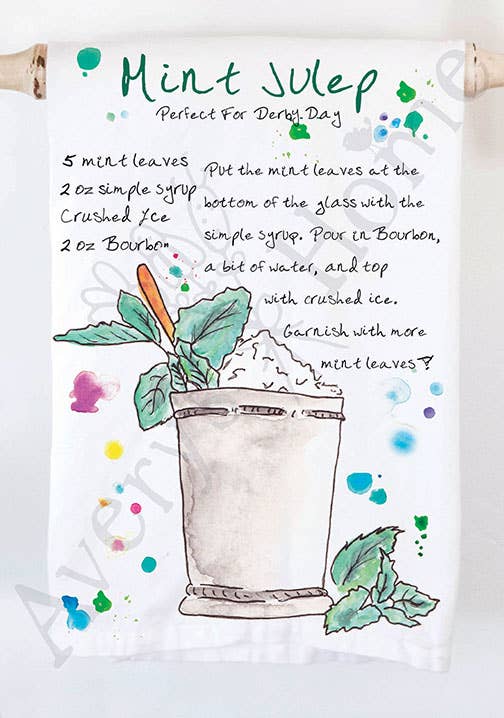 Mint Julep
Perfect For Derby Day
5 mint leaves
2 oz simple syrup
Crushed Ice
2 oz Bourbon
Put the mint leaves at the
bottom of the glass with the
simple syrup. Pour in Bourbon,
a bit of water, and top
with crushed ice.
Garnish with more
mint leaves!
Avery Home